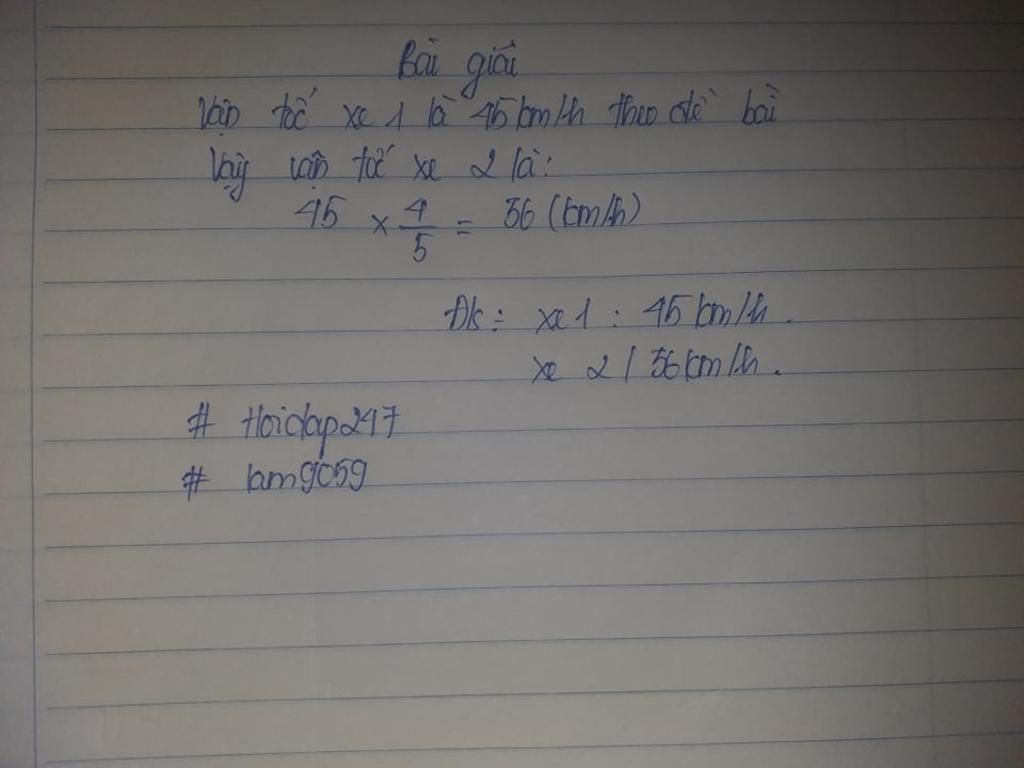 Bài giải
Vận tốc xe 1 là 45km/h theo đề bài
Vậy vận tốc xe 2 là:
45 × 4/5 = 36 (km/h)
Đs: xe 1 : 45km/h.
xe 2 : 36km/h.
# Hoidap247
# lam9059